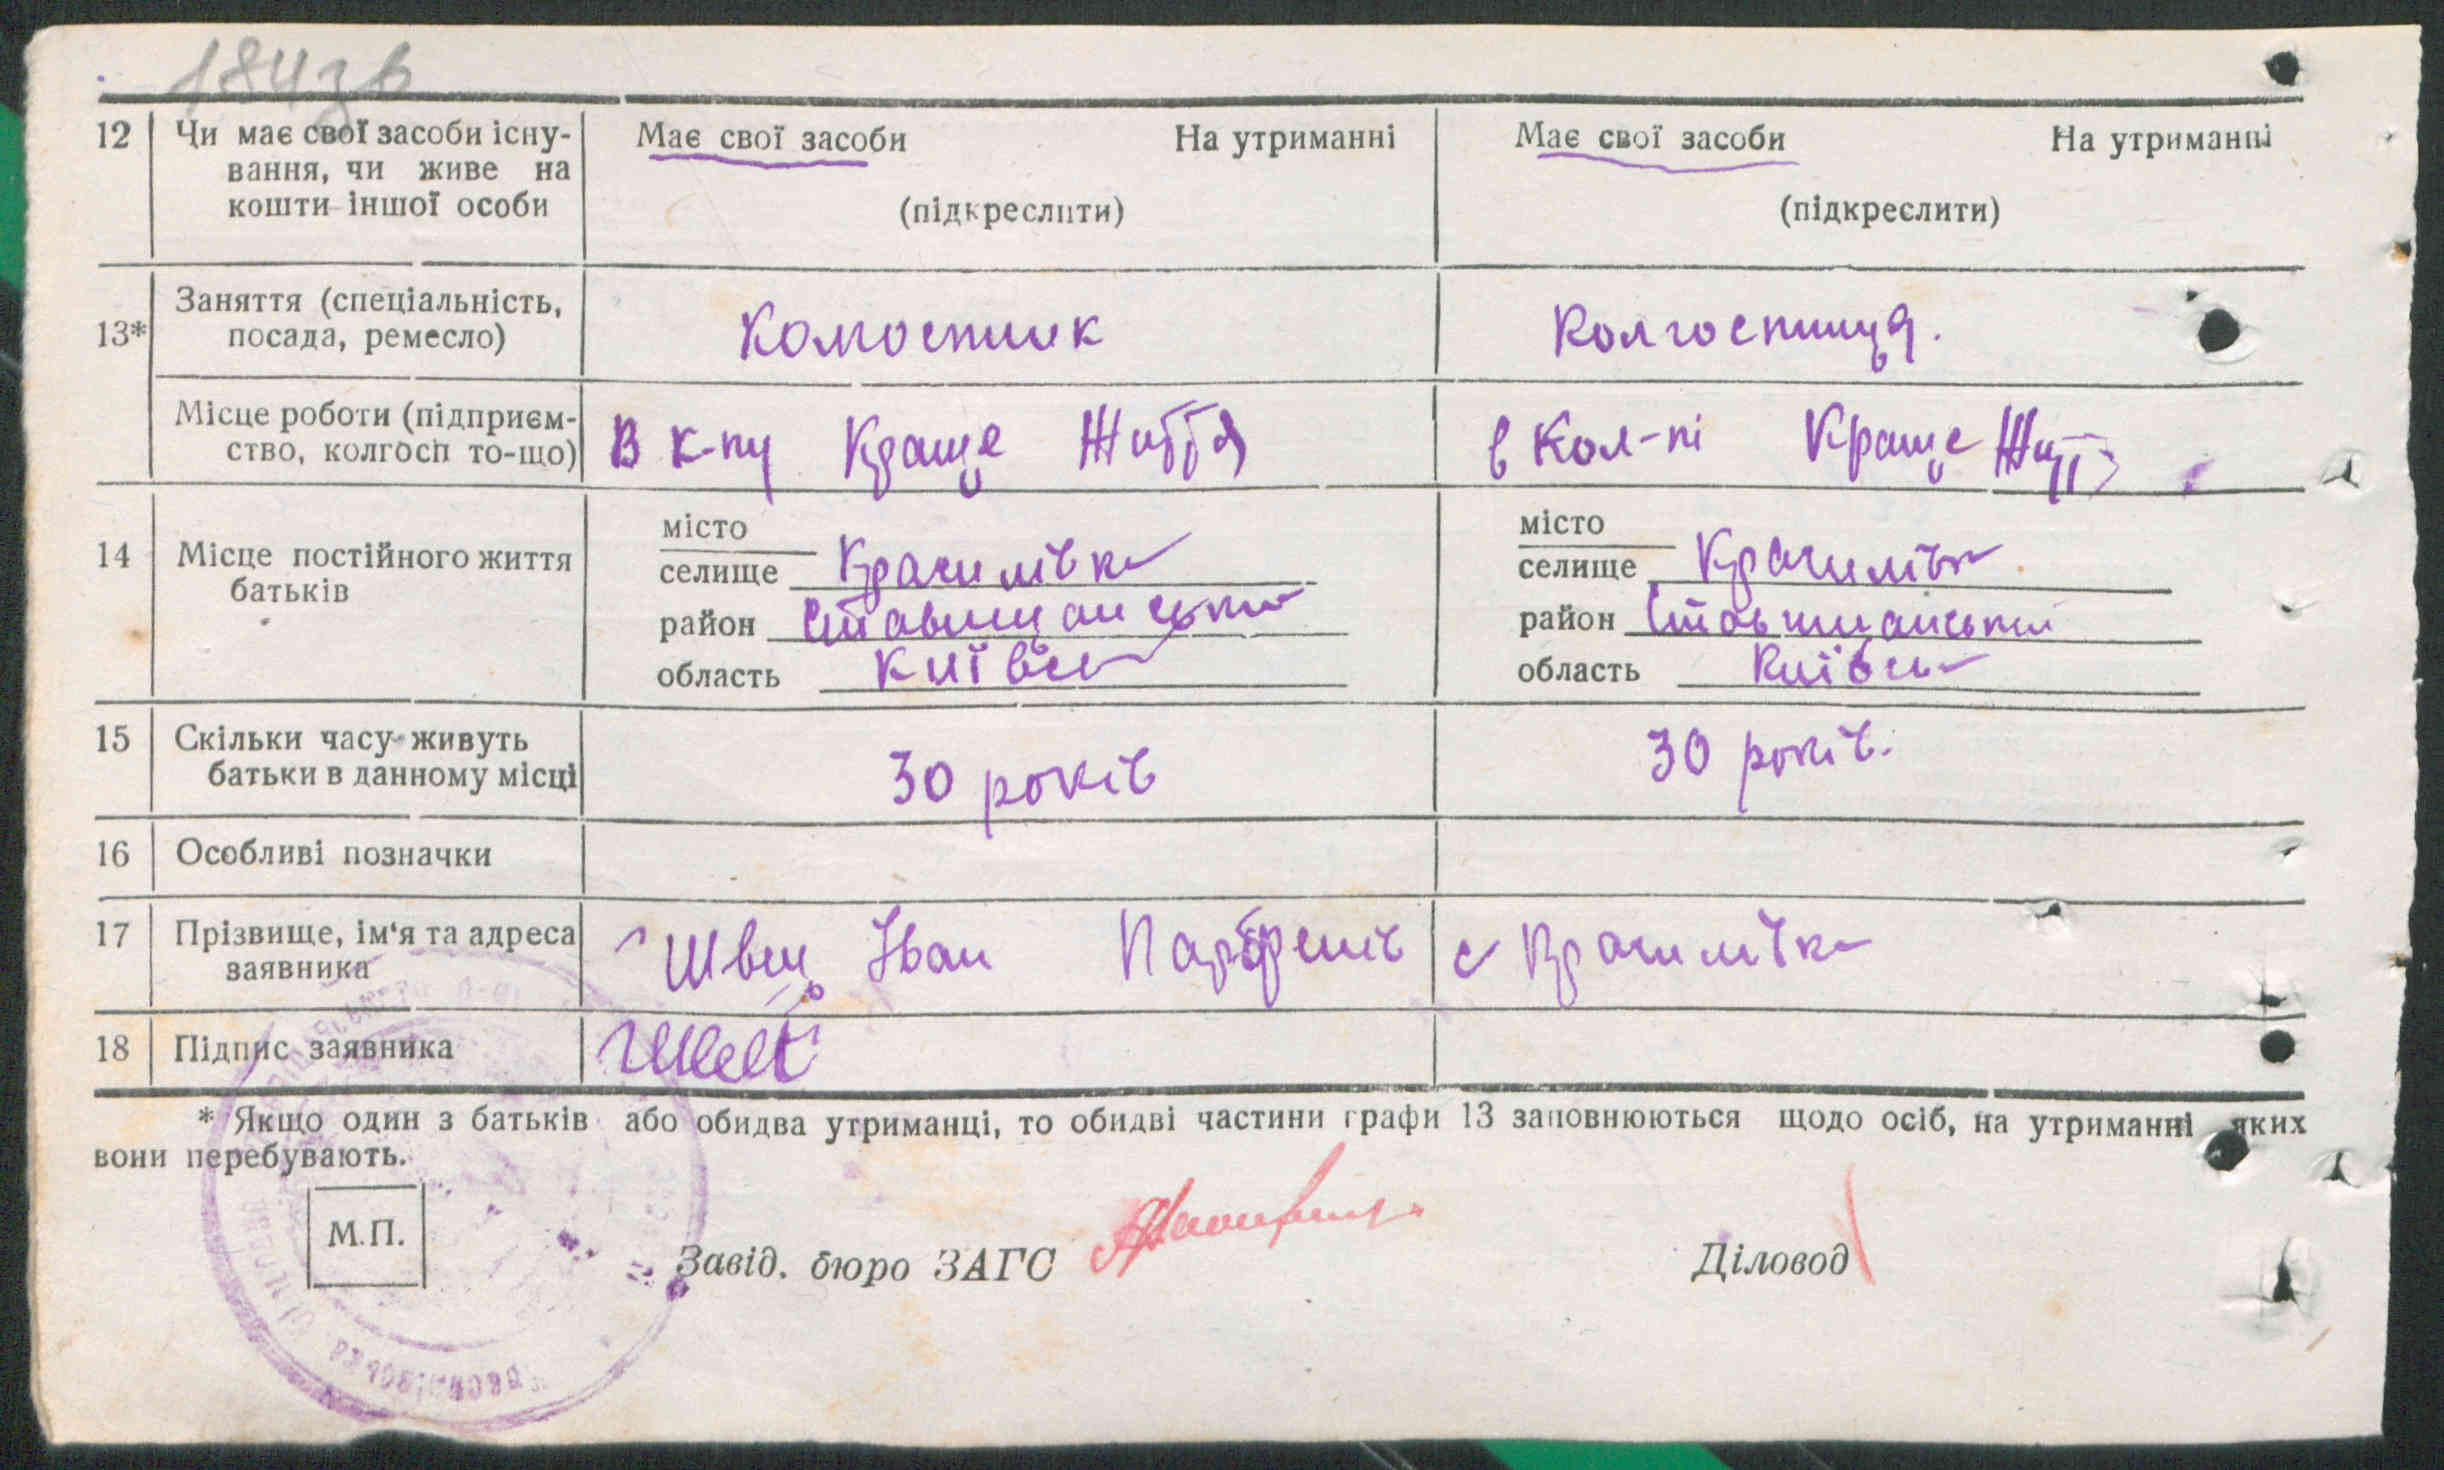 184зв
12 Чи має свої засоби існу- Має свої засоби На утриманні Має свої засоби На утриманні
вання, чи живе на
кошти іншої особи (підкреслити) (підкреслити)
Заняття (спеціальність,
13* посада, ремесло) Колгоспник Колгоспниця.
Місце роботи (підприєм-
ство, колгосп то-що) В к-пу Краще Життя в Кол-пі Краще Життя
місто місто
14 Місце постійного життя селище Красилівка селище Красилівка
батьків район Ставищанський район Ставищанський
область Київськ область Київськ
15 Скільки часу живуть
батьки в данному місці 30 років 30 років.
16 Особливі позначки
17 Прізвище, ім'я та адреса
заявника Швець Іван Парфенів с Красилівка
18 Підпис заявника
* Якщо один з батьків або обидва утриманці, то обидві частини графи 13 заповнюються щодо осіб, на утриманні яких
вони перебувають.
М.П.
Завід. бюро ЗАГС Діловод